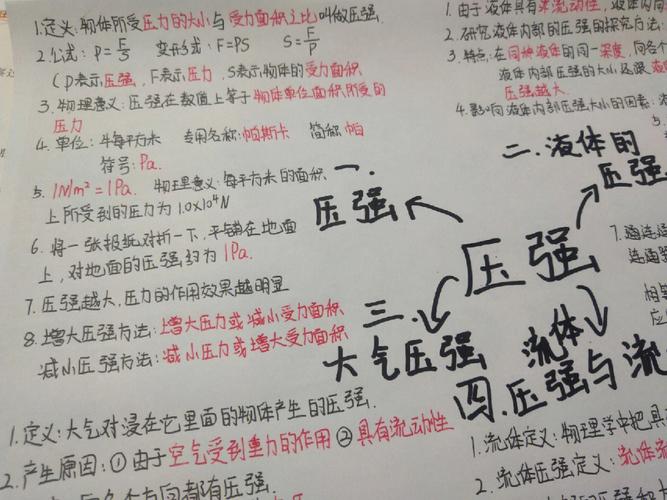 1.定义:物体所受压力的大小与受力面积之比叫做压强.
2.公式: P=F/S 变形式:F=PS S=F/P
(P表示压强, F表示压力, S表示物体的受力面积
3.物理意义:压强在数值上等于物体单位面积所受的
压力
4.单位:牛每平方米 专用名称:帕斯卡 简称:帕
符号:Pa.
5. 1N/m²=1Pa. 物理意义:每平方米的面积
上所受到的压力为1.0x10⁴N
6.将一张报纸对折一下,平铺在地面
上,对地面的压强约为1Pa.
7.压强越大,压力的作用效果越明显
8.增大压强方法:增大压力或减小受力面积
减小压强方法:减小压力或增大受力面积
一.
压强
压强
二.液体的
压强
三.
大气压强
流体
四.压强与流
1.定义:大气对浸在它里面的物体产生的压强.
2.产生原因:①由于空气受到重力的作用②具有流动性
各个方向都有压强.
1.由于液体具有流动性,液体
2.研究液体内部的压强的探究方法:
3.特点:在同种液体的同一深度,向各个
液体内部压强的大小还跟液
压强越大.
4.影响液体内部压强大小的因素:
5.
7.通
连通
相
应
1.流体定义:物理学中把具
2.流体压强定义:流体流